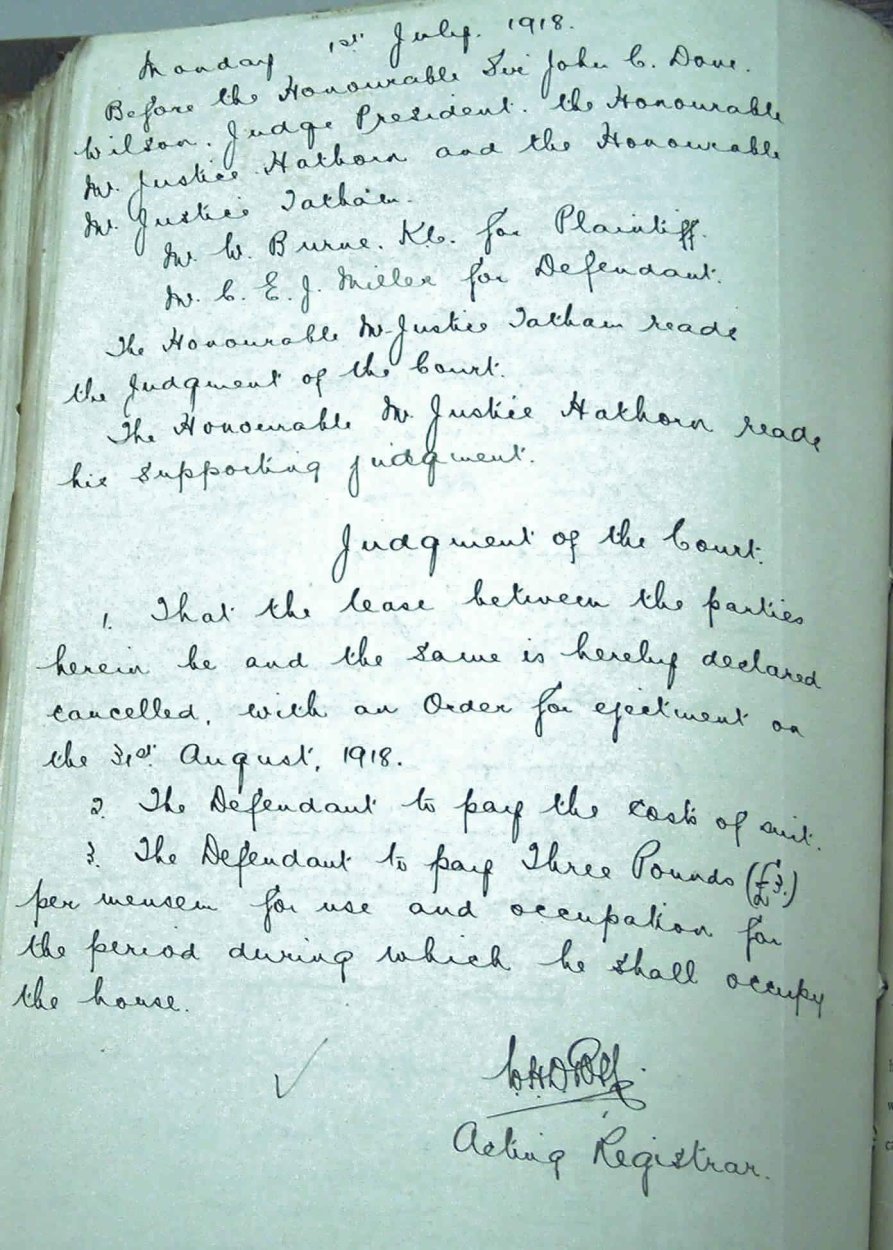 Monday 1st July. 1918.
Before the Honourable Sir John C. Dove.
Wilson. Judge President. the Honourable
Mr. Justice Hathorn and the Honourable
Mr. Justice Tatham.
Mr. W. Burne. K.C. for Plaintiff.
Mr. C. E. J. Miller for Defendant.
The Honourable Mr Justice Tatham reads
the Judgment of the Court.
The Honourable Mr. Justice Hathorn reads
his supporting judgment.
Judgment of the Court.
1. That the lease between the parties
herein be and the same is hereby declared
cancelled, with an Order for ejectment on
the 31st August, 1918.
2. The Defendant to pay the costs of suit.
3. The Defendant to pay Three Pounds (£3.)
per mensem for use and occupation for
the period during which he shall occupy
the house.
Acting Registrar.